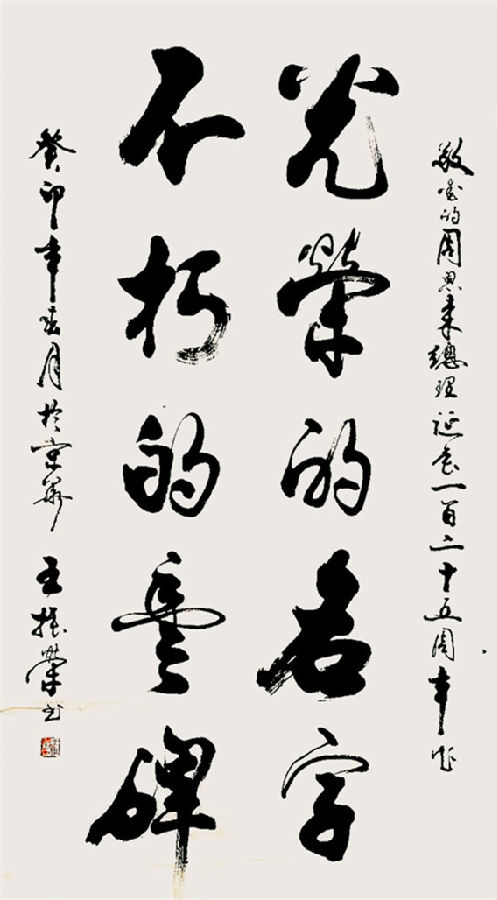 敬爱的周恩来總理诞辰一百二十五周年作
光荣的名字
不朽的丰碑
癸卯年春月於京华 王振荣书